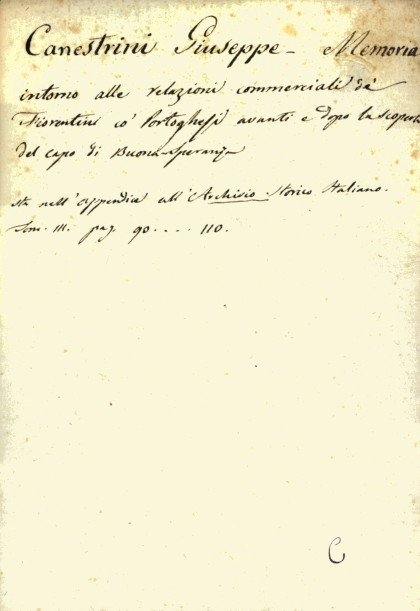 Canestrini Giuseppe - Memoria
intorno alle relazioni commerciali de'
Fiorentini co' Portoghesi avanti e dopo la scoperta
del capo di Buona-Speranza
sta nell'appendice all'Archivio Storico Italiano.
Tom. III. pag. 90 .... 110.
C